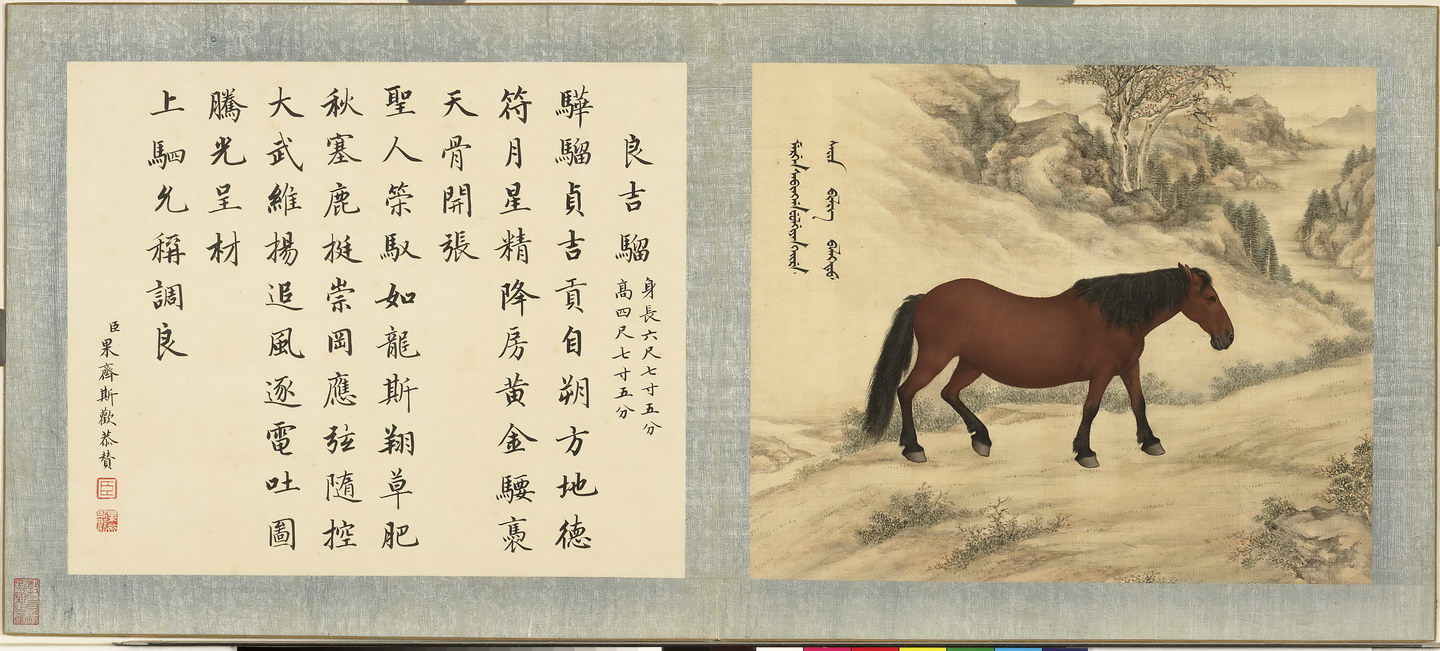 良吉騮
身長六尺七寸五分
高四尺七寸五分
驊騮貞吉貢自朔方地德
符月星精降房黄金騕褭
天骨開張
聖人䇿馭如龍斯翔草肥
秋塞鹿挺崇岡應弦隨控
大武維揚追風逐電吐圖
騰光呈材
上駟允稱調良
臣果齊斯歡恭贊